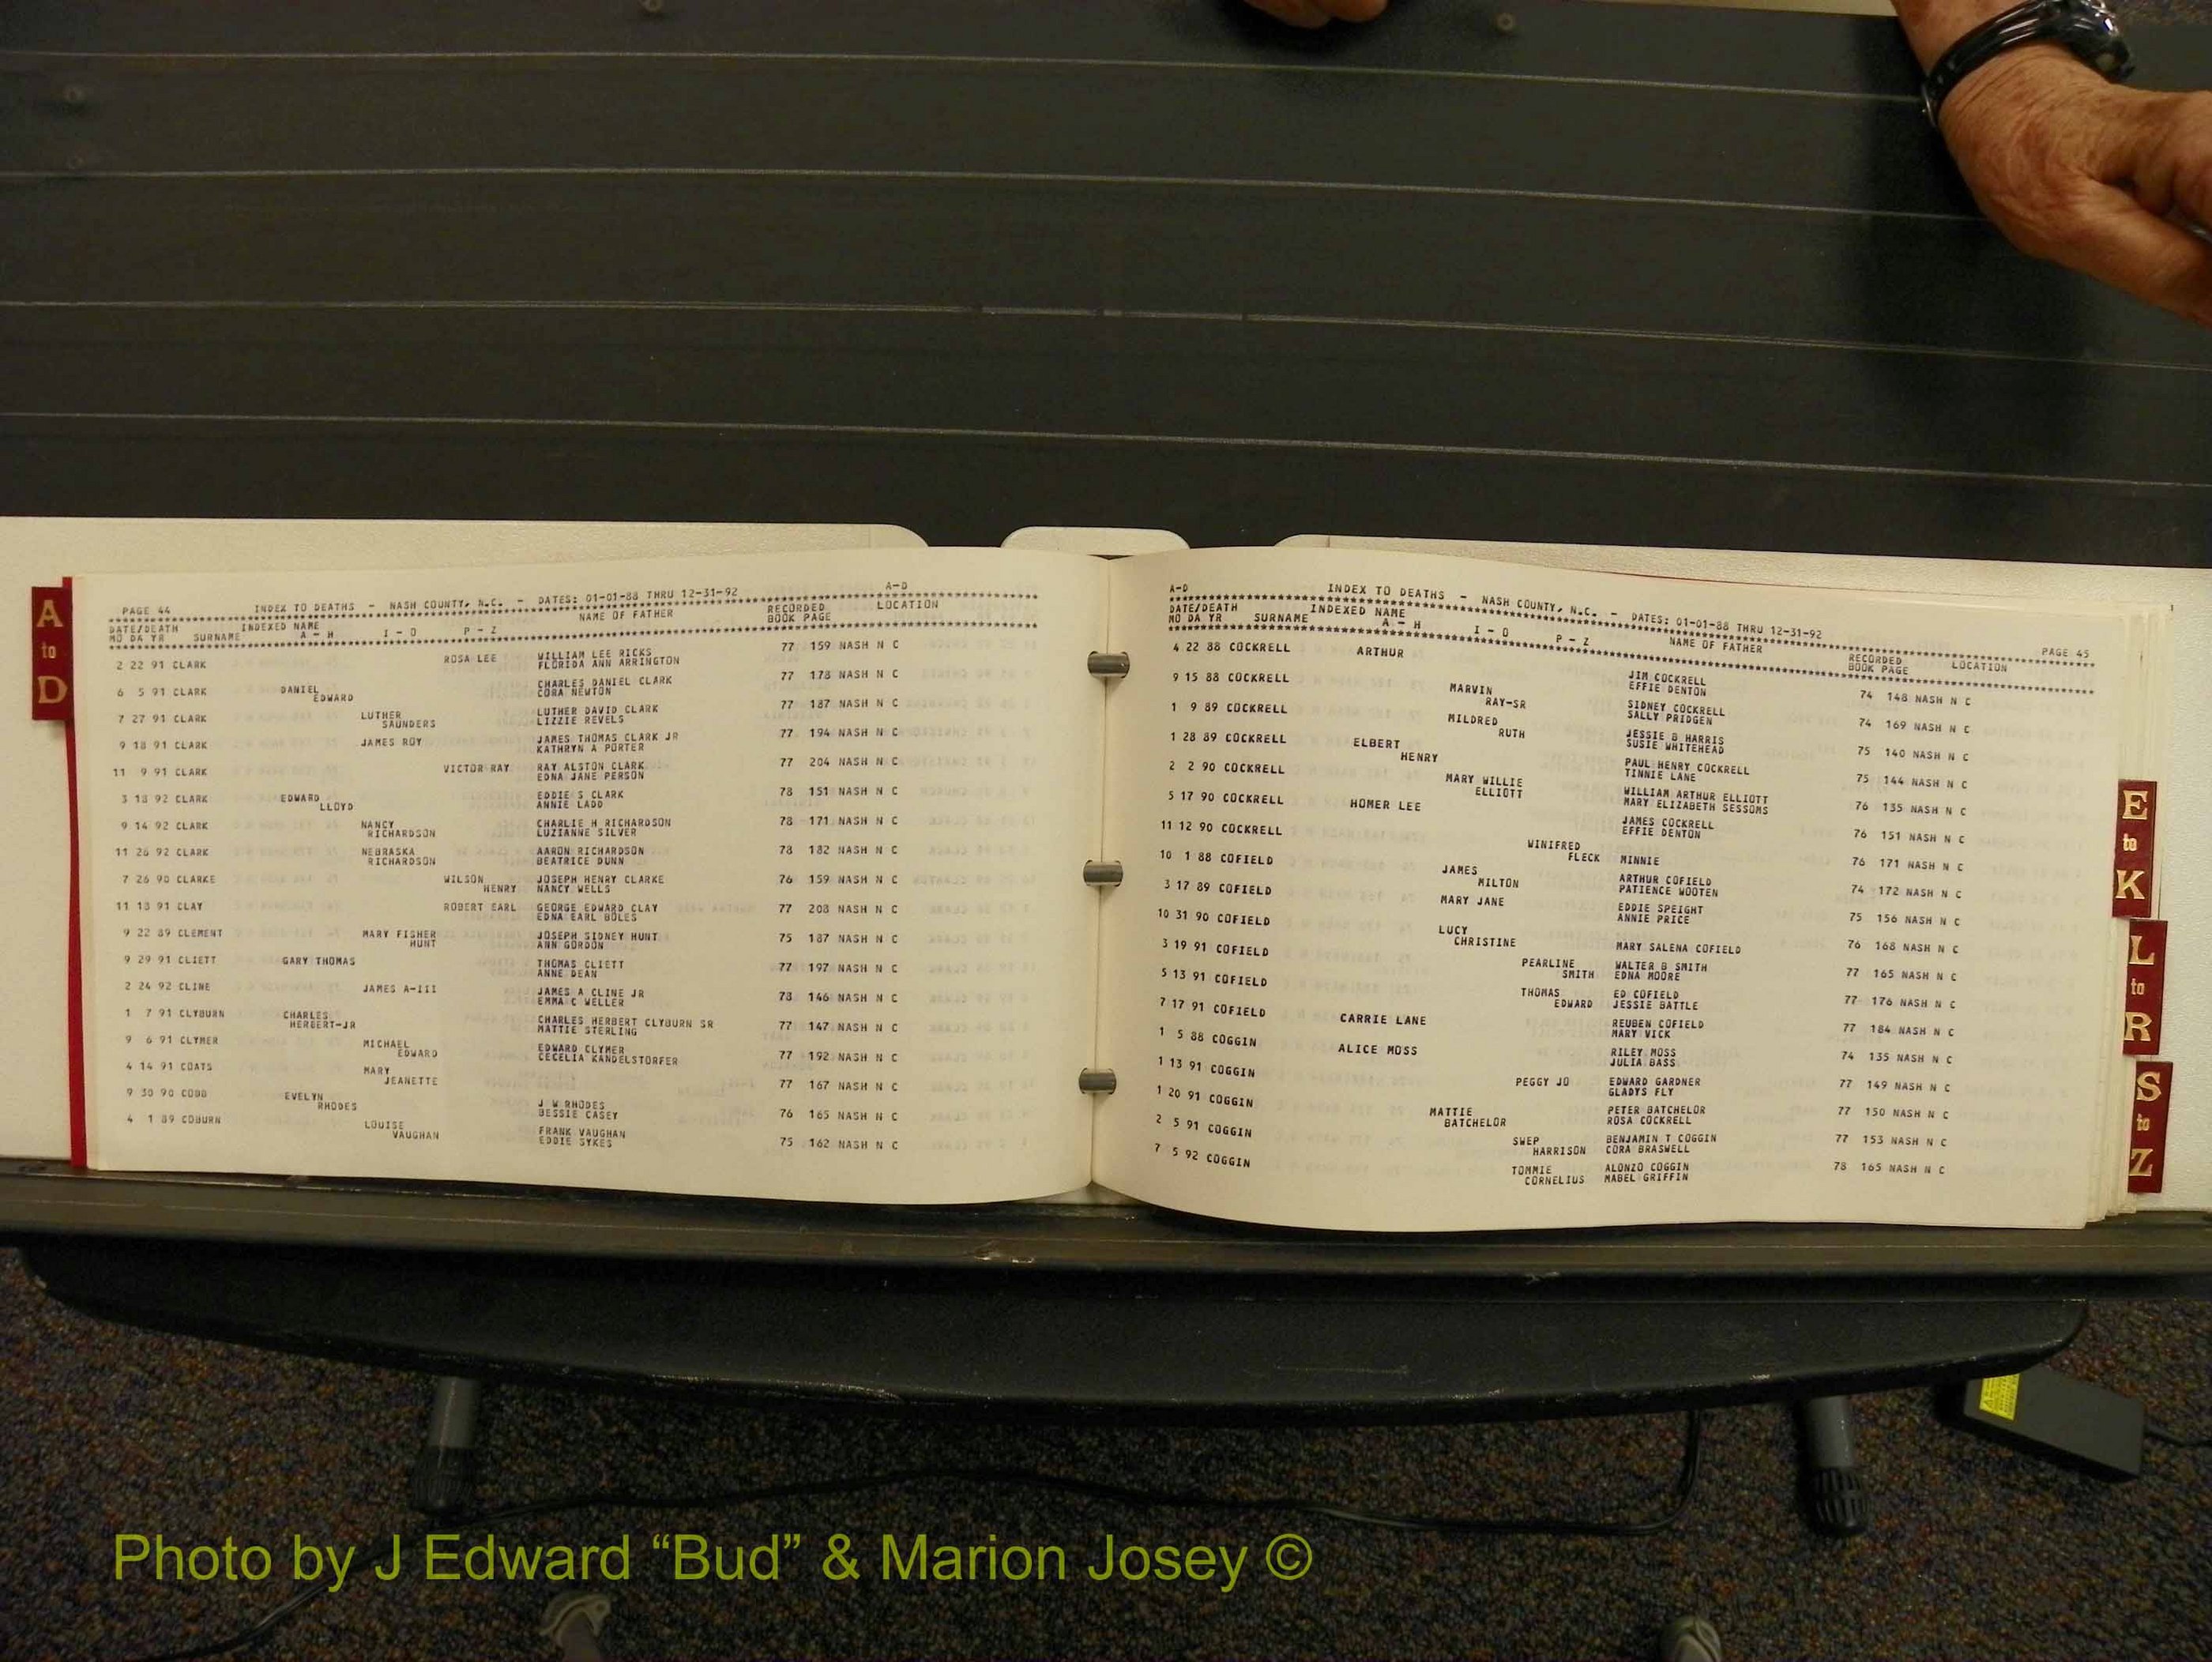 A
to
D
PAGE 44 INDEX TO DEATHS - NASH COUNTY, N.C. - DATES: 01-01-88 THRU 12-31-92 A-D
DATE/DEATH INDEXED NAME NAME OF FATHER RECORDED LOCATION
MO DA YR SURNAME A - H I - O P - Z BOOK PAGE
2 22 91 CLARK ROSA LEE WILLIAM LEE RICKS 77 159 NASH N C
FLORIDA ANN ARRINGTON
6 5 91 CLARK DANIEL CHARLES DANIEL CLARK 77 178 NASH N C
EDWARD CORA NEWTON
7 27 91 CLARK LUTHER LUTHER DAVID CLARK 77 187 NASH N C
SAUNDERS LIZZIE REVELS
9 18 91 CLARK JAMES ROY JAMES THOMAS CLARK JR 77 194 NASH N C
KATHRYN A PORTER
11 9 91 CLARK VICTOR RAY RAY ALSTON CLARK 77 204 NASH N C
EDNA JANE PERSON
3 18 92 CLARK EDWARD EDDIE S CLARK 78 151 NASH N C
LLOYD ANNIE LADD
9 14 92 CLARK NANCY CHARLIE H RICHARDSON 78 171 NASH N C
RICHARDSON LUZIANNE SILVER
11 26 92 CLARK NEBRASKA AARON RICHARDSON 78 182 NASH N C
RICHARDSON BEATRICE DUNN
7 26 90 CLARKE WILSON JOSEPH HENRY CLARKE 76 159 NASH N C
HENRY NANCY WELLS
11 13 91 CLAY ROBERT EARL GEORGE EDWARD CLAY 77 208 NASH N C
EDNA EARL BOLES
9 22 89 CLEMENT MARY FISHER JOSEPH SIDNEY HUNT 75 187 NASH N C
HUNT ANN GORDON
9 29 91 CLIETT GARY THOMAS THOMAS CLIETT 77 197 NASH N C
ANNE DEAN
2 24 92 CLINE JAMES A-III JAMES A CLINE JR 78 146 NASH N C
EMMA C WELLER
1 7 91 CLYBURN CHARLES CHARLES HERBERT CLYBURN SR 77 147 NASH N C
HERBERT-JR MATTIE STERLING
9 6 91 CLYMER MICHAEL EDWARD CLYMER 77 192 NASH N C
EDWARD CECELIA KANDELSTORFER
4 14 91 COATS MARY 77 167 NASH N C
JEANETTE
9 30 90 COBB EVELYN J W RHODES 76 165 NASH N C
RHODES BESSIE CASEY
4 1 89 COBURN LOUISE FRANK VAUGHAN 75 162 NASH N C
VAUGHAN EDDIE SYKES
A-D INDEX TO DEATHS - NASH COUNTY, N.C. - DATES: 01-01-88 THRU 12-31-92 PAGE 45
DATE/DEATH INDEXED NAME NAME OF FATHER RECORDED LOCATION
MO DA YR SURNAME A - H I - O P - Z BOOK PAGE
4 22 88 COCKRELL ARTHUR JIM COCKRELL 74 148 NASH N C
EFFIE DENTON
9 15 88 COCKRELL MARVIN SIDNEY COCKRELL 74 169 NASH N C
RAY-SR SALLY PRIDGEN
1 9 89 COCKRELL MILDRED JESSIE B HARRIS 75 140 NASH N C
RUTH SUSIE WHITEHEAD
1 28 89 COCKRELL ELBERT PAUL HENRY COCKRELL 75 144 NASH N C
HENRY TINNIE LANE
2 2 90 COCKRELL MARY WILLIE WILLIAM ARTHUR ELLIOTT 76 135 NASH N C
ELLIOTT MARY ELIZABETH SESSOMS
5 17 90 COCKRELL HOMER LEE JAMES COCKRELL 76 151 NASH N C
EFFIE DENTON
11 12 90 COCKRELL WINIFRED 76 171 NASH N C
FLECK MINNIE
10 1 88 COFIELD JAMES ARTHUR COFIELD 74 172 NASH N C
MILTON PATIENCE WOOTEN
3 17 89 COFIELD MARY JANE EDDIE SPEIGHT 75 156 NASH N C
ANNIE PRICE
10 31 90 COFIELD LUCY 76 168 NASH N C
CHRISTINE MARY SALENA COFIELD
3 19 91 COFIELD PEARLINE WALTER B SMITH 77 165 NASH N C
SMITH EDNA MOORE
5 13 91 COFIELD THOMAS ED COFIELD 77 176 NASH N C
EDWARD JESSIE BATTLE
7 17 91 COFIELD CARRIE LANE REUBEN COFIELD 77 184 NASH N C
MARY VICK
1 5 88 COGGIN ALICE MOSS RILEY MOSS 74 135 NASH N C
JULIA BASS
1 13 91 COGGIN PEGGY JO EDWARD GARDNER 77 149 NASH N C
GLADYS FLY
1 20 91 COGGIN MATTIE PETER BATCHELOR 77 150 NASH N C
BATCHELOR ROSA COCKRELL
2 5 91 COGGIN SWEP BENJAMIN T COGGIN 77 153 NASH N C
HARRISON CORA BRASWELL
7 5 92 COGGIN TOMMIE ALONZO COGGIN 78 165 NASH N C
CORNELIUS MABEL GRIFFIN
E
to
K
L
to
R
S
to
Z
Photo by J Edward “Bud” & Marion Josey ©